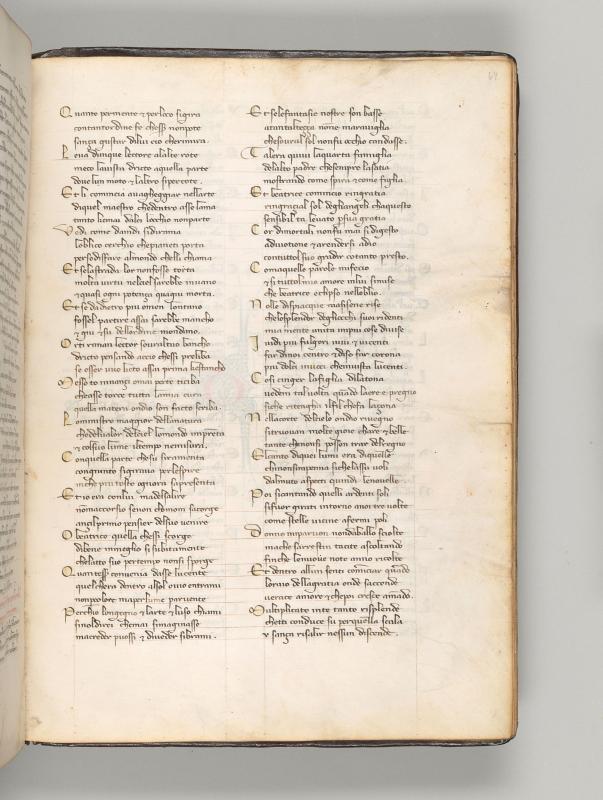 Quanto permente & perloco sigira
contantordine fe chesser nonpote
sança gustar dilui cio cherimira.
Leva dunque lectore alalte rote
meco lavista dricto aquella parte
dove lun moto & laltro sipercote.
Et li comincia avagheggiar nellarte
diquel maestro chedentro asse lama
tanto chemai dalei lochio nonparte
Vedi come daindi sidirama
loblico cerchio chepianeti porta
persodisfare almondo cheli chiama
Et selastrada lor nonfosse torta
molta virtu nelciel sarebbe invano
& quasi ogni potenza quagiu morta.
Et sedaldricto piu omen lontano
fossel partire assai sarebbe mancho
& giu & su dellordine mondano.
Orti riman lector sovraltuo bancho
dricto pensando accio chessi preliba
se esser vuo lieto assai prima chestancho
Messo to innançi omai perte ticiba
cheasse torce tutta lamia cura
quella materia ondio son facto scriba.
Loministro maggior dellanatura
chodelvalor delciel lomondo imprenta
& colsuo lume iltempo nemisura.
Conquella parte chesu siramenta
congiunto sigirava perlespire
inche piu tosto ognora sapresenta
Et io era conlui madelsalire
nonmaccorsio senon chomom sacorge
ançilprimo pensier delsuo venire
O beatrice quella chessi scorge
dibene inmeglio si subitamente
chelatto suo pertempo nonsi sporge
Quantesser convenia dasse lucente
quelchera dentro alsol ovio entrami
nonpercolore maperlume parvente
Perchio longegno & larte & luso chiami
sinoldirei chemai simaginasse
macreder puossi & diveder sibrami.
Et selefantasie nostre son basse
atantalteçça none maraviglia
chesovralsol nonfu occhio candasse.
Talera quivi laquarta famiglia
delalto padre chesempre lasatia
mostrando come spira & come figlia.
Et beatrice comincio ringratia
ringratia il sol degliangeli chaquesto
sensibil ta levato persua gratia
Cor dimortali nonfu mai sidigesto
adivotione & arendersi adio
contuttolsuo gradir cotanto presto.
Comaquelle parole mifecio
& si tuttolmio amore inlui simise
che beatrice eclipso nelloblio.
Nolle dispiacque masisene rise
chelosplendor degliocchi suoi ridenti
mia mente unita inpiu cose divise
Iovidi piu fulgori vivi & vincenti
far dinoi centro & dise far corona
piu dolci invoce cheinvista lucenti.
Cosi cinger lafiglia dilatona
vedem talvolta quando laere e pregno
siche ritenghi ilfil chefa laçona
Nellacorte delcielo ondio rivegno
sitrovoan molte gioie chare & belle
tanto chenonsi posson trar delregno
Elcanto diquei lumi era diquelle
chinonsimpenna siche lassu voli
dalmuto aspecti quindi lenovelle
Poi sicantando quelli ardenti soli
sifuor girati intorno anoi tre volte
come stelle vicine afermi poli
Donne miparvon nondaballo sciolte
mache sarrestin tacite ascoltando
finche lenuove note anno ricolte
Et dentro allun senti cominciar quando
loraio dellagratia onde saccende
verace amore & chepoi cresce amando.
Multiplicato inte tanto risplende
cheti conduce su perquella scala
v sança risalir nessun discende.